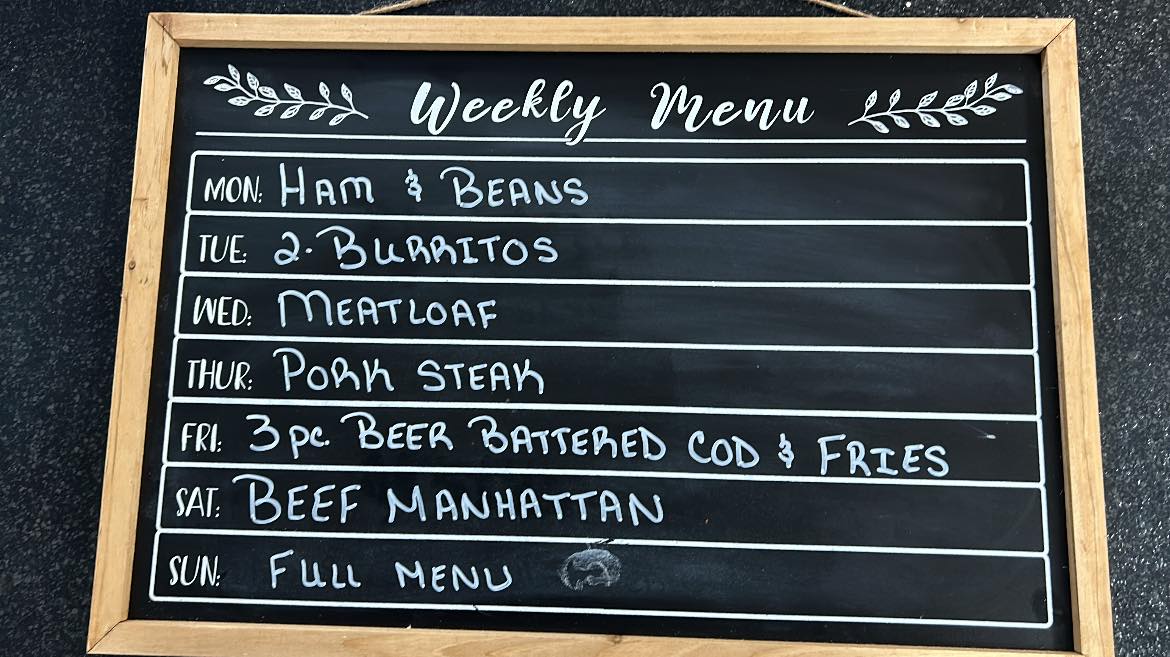 Weekly Menu
MON: HAM & BEANS
TUE: 2 - BURRITOS
WED: MEATLOAF
THUR: PORK STEAK
FRI: 3 pc. BEER BATTERED COD & FRIES
SAT: BEEF MANHATTAN
SUN: FULL MENU